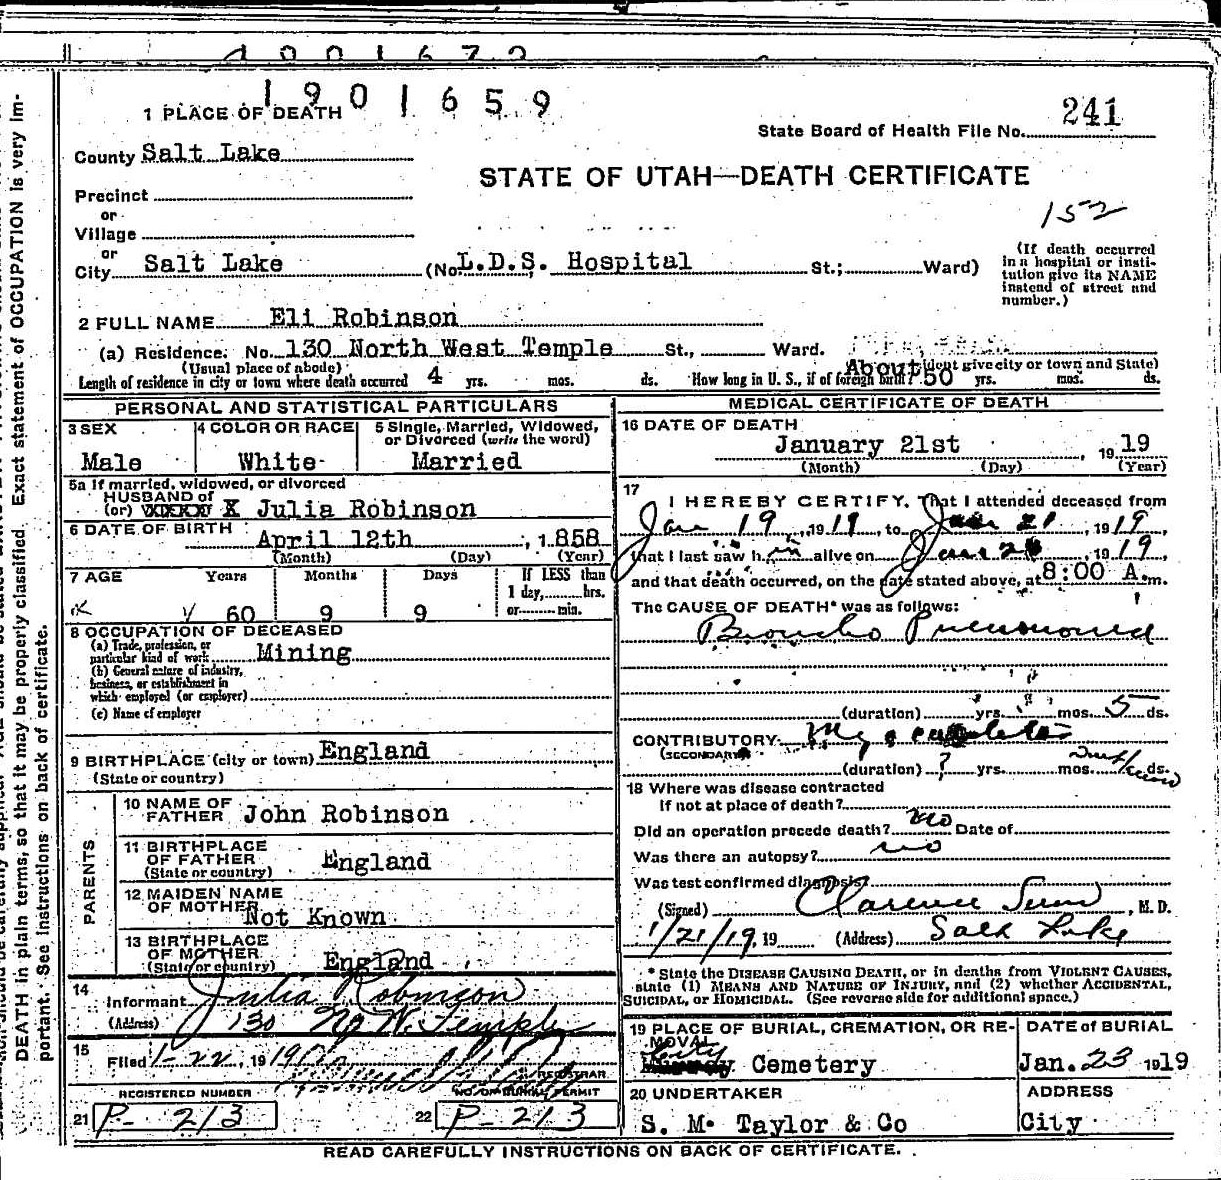 1901659
1 PLACE OF DEATH
241
State Board of Health File No.
County Salt Lake
STATE OF UTAH—DEATH CERTIFICATE
Precinct
or
Village
152
or
City Salt Lake (No. L.D.S. Hospital St.; Ward)
(If death occurred
in a hospital or insti-
tution give its NAME
instead of street and
number.)
2 FULL NAME Eli Robinson
(a) Residence. No. 130 North West Temple St., Ward.
(Usual place of abode) give city or town and State)
Length of residence in city or town where death occurred 4 yrs. mos. ds. How long in U. S., if of foreign birth? About 50 yrs. mos. ds.
PERSONAL AND STATISTICAL PARTICULARS
3 SEX
Male
4 COLOR OR RACE
White
5 Single, Married, Widowed,
or Divorced (write the word)
Married
5a If married, widowed, or divorced
HUSBAND of
(or) Julia Robinson
6 DATE OF BIRTH
April 12th, 1858
(Month) (Day) (Year)
7 AGE Years Months Days If LESS than
1 day, hrs.
or min.
60 9 9
8 OCCUPATION OF DECEASED
(a) Trade, profession, or
particular kind of work Mining
(b) General nature of industry,
business, or establishment in
which employed (or employer)
(c) Name of employer
9 BIRTHPLACE (city or town) England
(State or country)
PARENTS
10 NAME OF
FATHER John Robinson
11 BIRTHPLACE
OF FATHER England
(State or country)
12 MAIDEN NAME
OF MOTHER Not Known
13 BIRTHPLACE
OF MOTHER
(State or country) England
14
Informant Julia Robinson
(Address) 130 No W. Temple
15
Filed 1-22, 1919
REGISTRAR
REGISTERED NUMBER
NO. OF BURIAL PERMIT
21 P- 213
22 P- 213
MEDICAL CERTIFICATE OF DEATH
16 DATE OF DEATH
January 21st, 1919
(Month) (Day) (Year)
17
I HEREBY CERTIFY, That I attended deceased from
Jan 19, 1919, to Jan 21, 1919,
that I last saw him alive on Jan, 1919,
and that death occurred, on the date stated above, at 8:00 A.m.
The CAUSE OF DEATH* was as follows:
Broncho Pneumonia
(duration) yrs. mos. 5 ds.
CONTRIBUTORY
(SECONDARY)
(duration) ? yrs. mos. ds.
18 Where was disease contracted
If not at place of death?
Did an operation precede death? no Date of
Was there an autopsy? no
Was test confirmed diagnosis?
(Signed) Clarence, M. D.
1/21/19, 19 (Address) Salt Lake
* State the DISEASE CAUSING DEATH, or in deaths from VIOLENT CAUSES,
state (1) MEANS AND NATURE OF INJURY, and (2) whether ACCIDENTAL,
SUICIDAL, or HOMICIDAL. (See reverse side for additional space.)
19 PLACE OF BURIAL, CREMATION, OR RE-
MOVAL
City Cemetery
DATE of BURIAL
Jan. 23 1919
20 UNDERTAKER
S. M. Taylor & Co
ADDRESS
City
READ CAREFULLY INSTRUCTIONS ON BACK OF CERTIFICATE.
DEATH in plain terms, so that it may be properly classified. Exact statement of OCCUPATION is very im-
portant. See instructions on back of certificate.